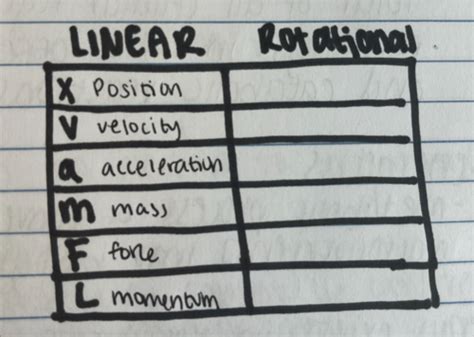 LINEAR Rotational
X Position
V velocity
a acceleration
m mass
F force
L momentum